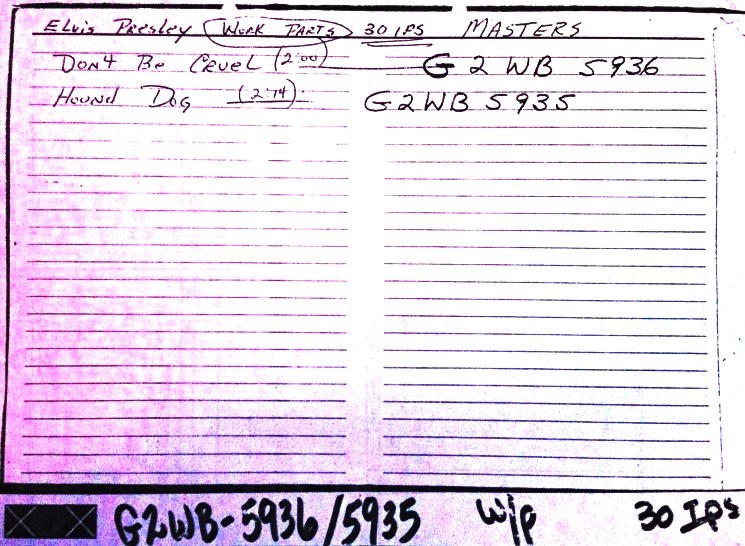 Elvis Presley (Work Parts) 30 IPS MASTERS
Don't Be Cruel (2:00) G2WB 5936
Hound Dog (2:14) G2WB 5935
G2WB-5936/5935 w/p 30 Ips